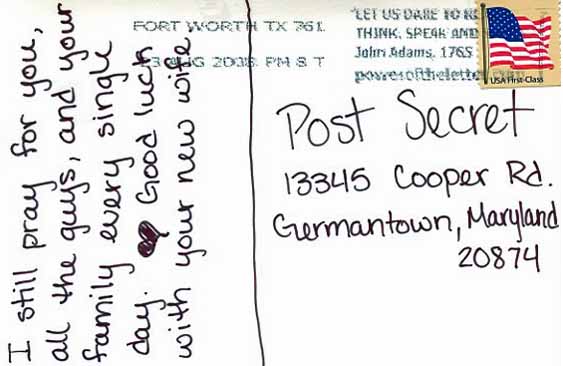 I still pray for you,
all the guys, and your
family every single
day. ♥ Good luck
with your new wife
FORT WORTH TX 761
AUG PM 8 T
"LET US DARE TO
THINK, SPEAK AND
John Adams, 1765
poweroftheletter.com
USA First-Class
Post Secret
13345 Cooper Rd.
Germantown, Maryland
20874